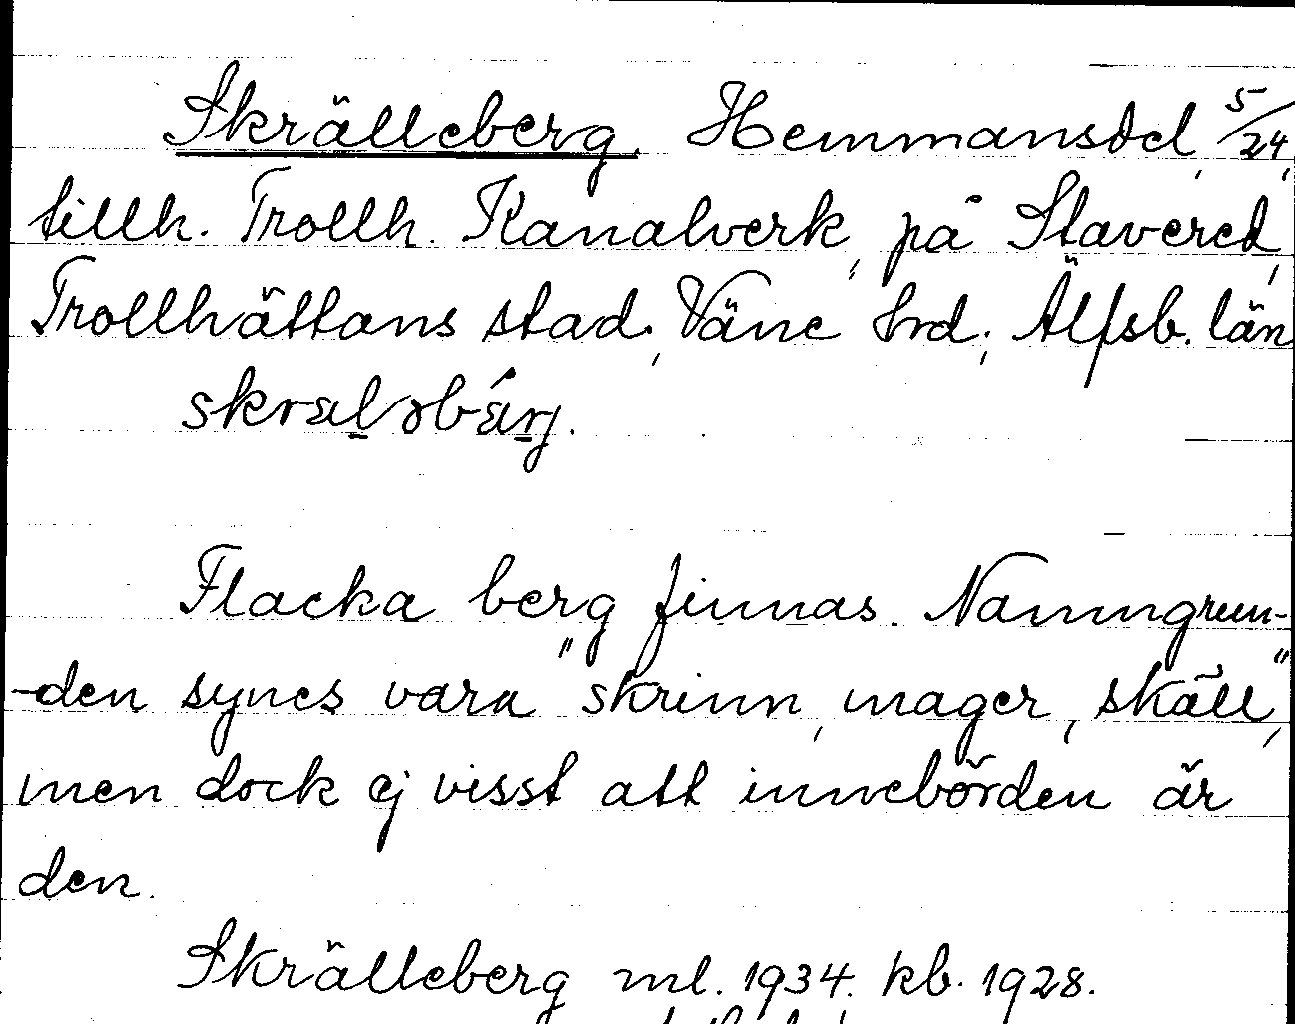 Skrälleberg. Hemmansdel, 5/24,
tillh. Trollh. Kanalverk, på Stavered,
Trollhättans stad, Väne hrd; Älfsb. län
Flacka berg finnas. Namngrun-
-den synes vara "skrinn, mager, skäll",
men dock ej visst att innebörden är
den.
Skrälleberg ml. 1934. kb. 1928.